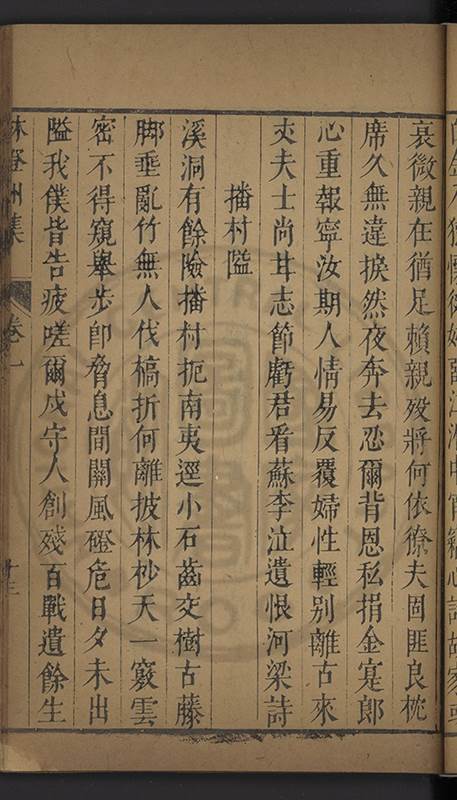 衰微親在猶足賴親歿將何依獠夫固匪良枕
席久無違掞然夜奔去忍爾背恩私捐金寔郎
心重報寧汝期人情易反覆婦性輕別離古來
丈夫士尚茸志節虧君看蘇李泣遺恨河梁詩
播村隘
溪洞有餘險播村扼南夷逕小石齒交樹古藤
脚垂亂竹無人伐槁折何離披林杪天一竅雲
密不得窺舉步卽脅息間關風磴危日夕未出
隘我僕皆告疲嗟爾戍守人創殘百戰遺餘生
林登州集
卷一
十三